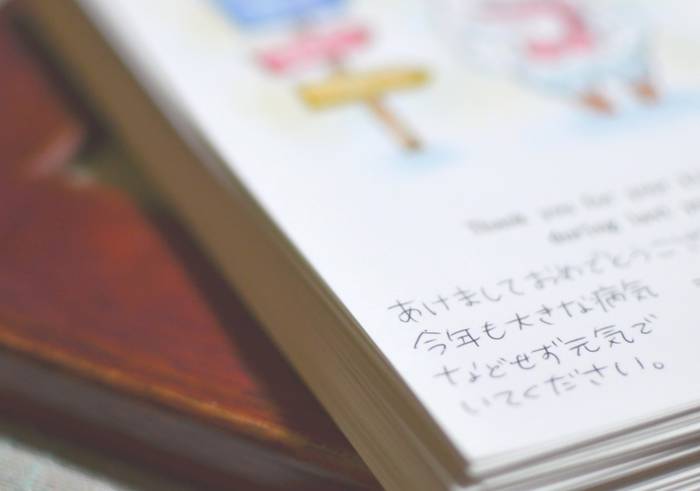 Thank you for your
during last
あけましておめでとうござ
今年も大きな病気
などせず元気で
いてください。